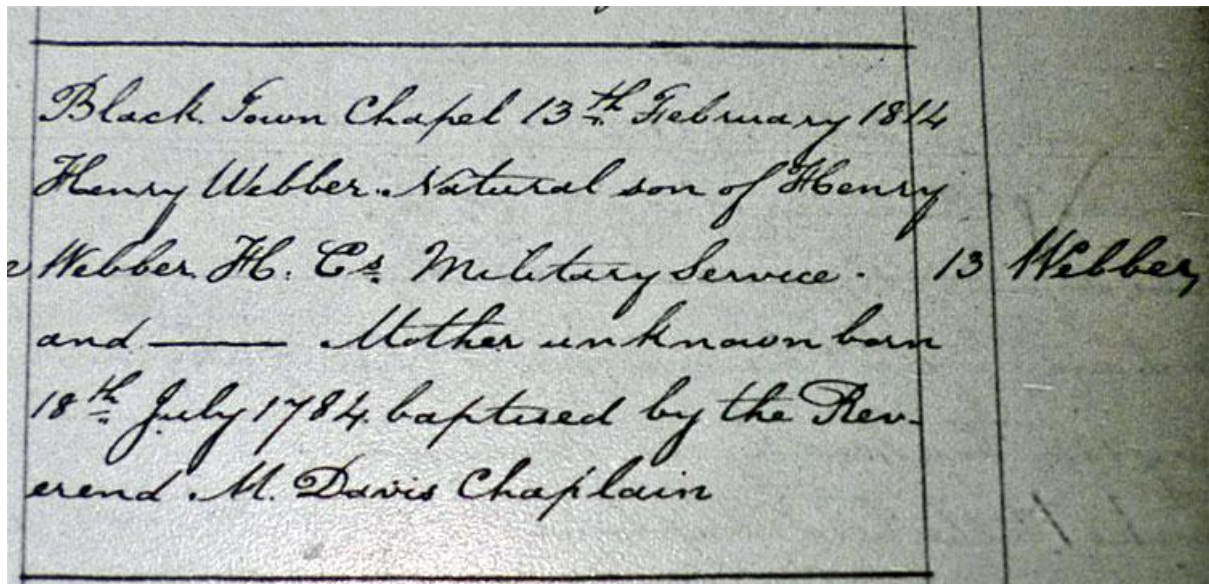 Black Town Chapel 13th February 1814
Henry Webber Natural son of Henry
Webber H. Cs. Military Service. 13 Webber,
and —— Mother unknown born
18th July 1784 baptised by the Rev-
erend M. Davis Chaplain